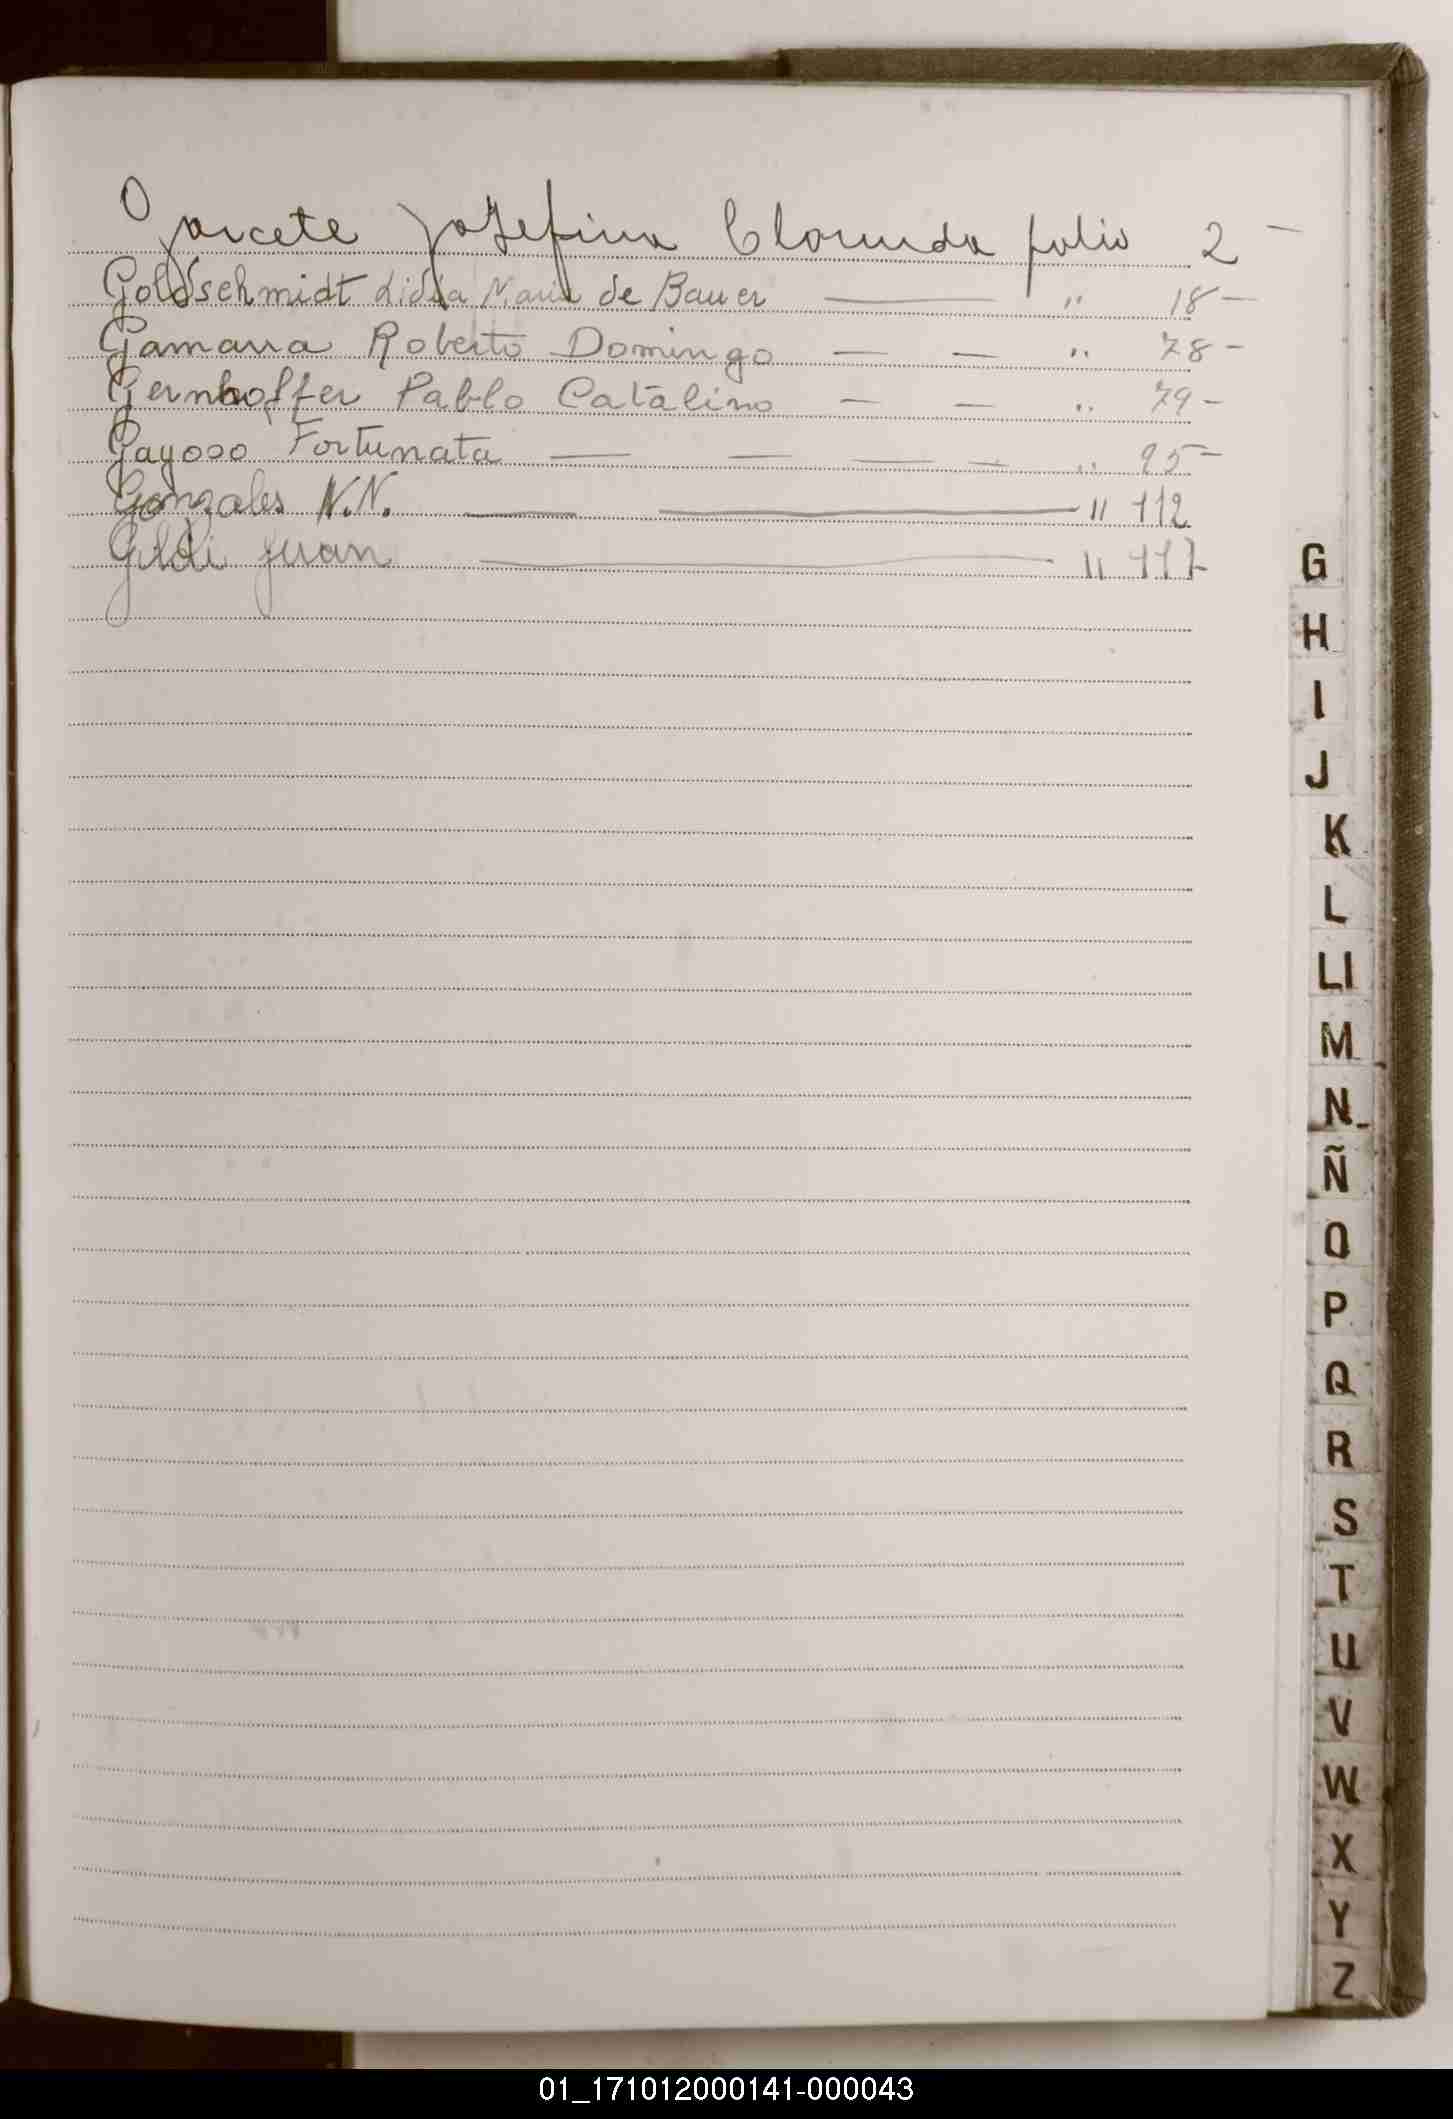 Garcete Josefina Clorinda folio 2 —
Goldschmidt Lidia Maria de Bauer — " 18 —
Gamarra Roberto Domingo — — " 78 —
Gernhoffer Pablo Catalino — — " 79 —
Gayoso Fortunata — — — — " 95 —
Gonzales N.N. — — " 112
Gildi Juan — " 117
G
H
I
J
K
L
Ll
M
N
Ñ
O
P
Q
R
S
T
U
V
W
X
Y
Z
01_171012000141-000043